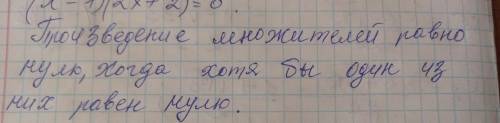 (x - 1)(2x + 2) = 0.
Произведение множителей равно
нулю, когда хотя бы один из
них равен нулю.